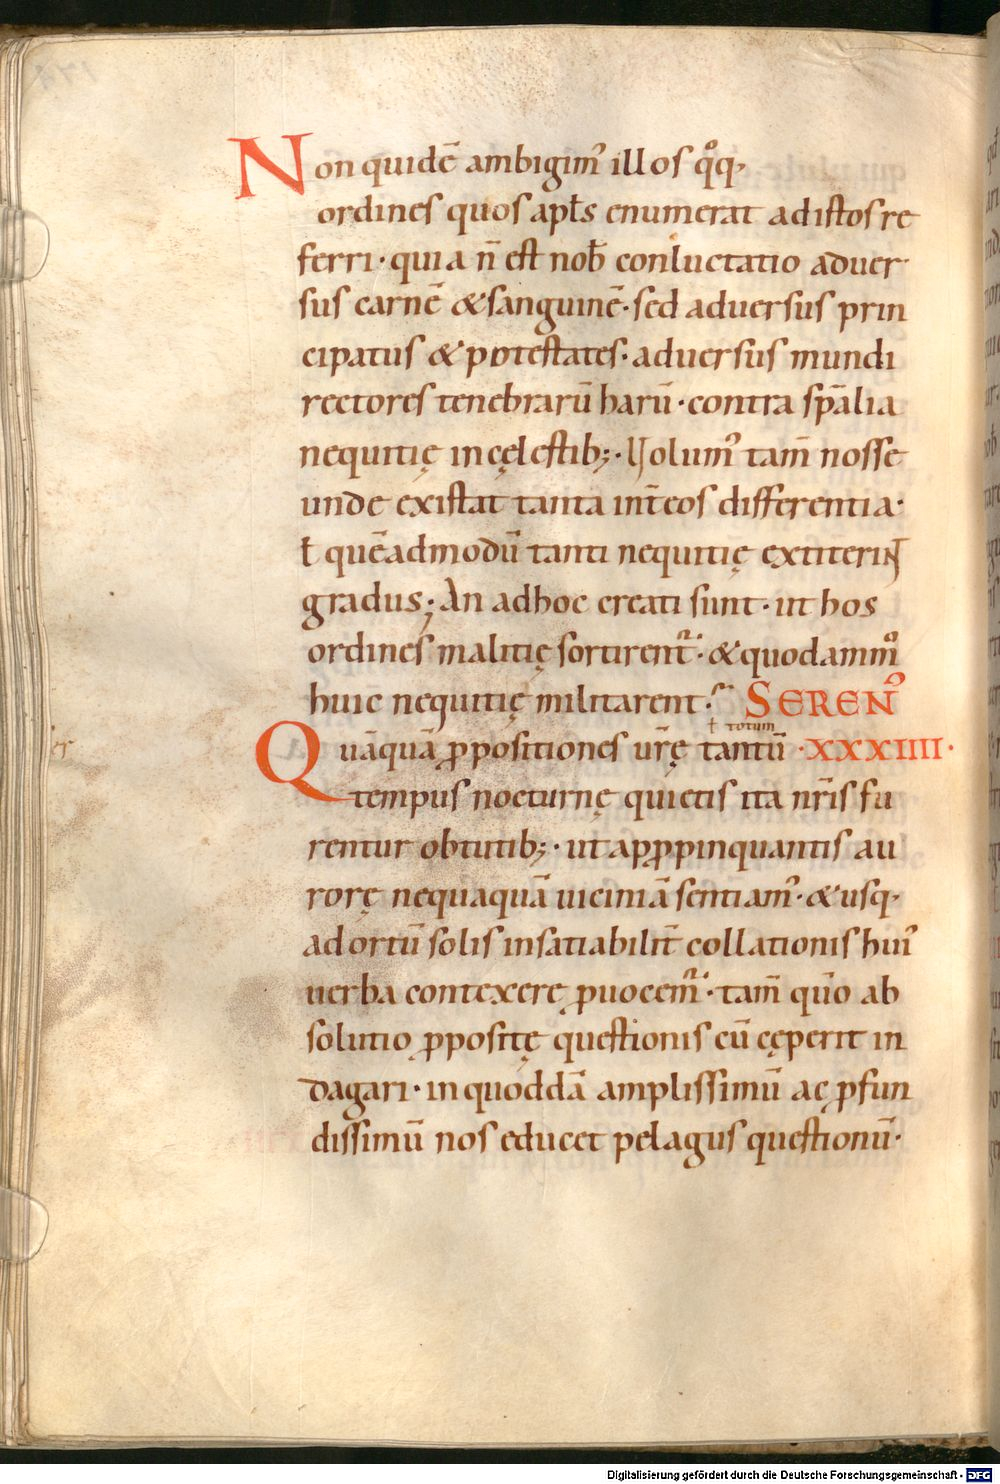 Non quidē ambigim᾽ illos qͦq·
ordines quos apłs enumerat ad istos re
ferri· quia n̄ est nob̄ conluctatio aduer
sus carnē & sanguinē· sed aduersus prin
cipatus & potestates· aduersus mundi
rectores tenebrarū harū· contra sp̄alia
nequitię in cęlestib;· Uolum᾽ tam̄ nosse
unde existat tanta int̄ eos differentia·
ł quēadmodū tanti nequitię extiterint
gradus; An ad hoc creati sunt· ut hos
ordines malitię sortirent᷑· & quodammͦ
huic nequitię militarent· SEREN᾽
ł totum
Quāquā ꝓpositiones ur̄ę tantū ·XXXIIII·
tempus nocturnę quietis ita nr̄is fu
rentur obtutib;· ut apꝓpinquantis au
rorę nequaquā uiciniā sentiam᾽· & usq·
ad ortū solis insatiabilit̄ collationis hui᾽
uerba contexere ꝓuocem᷑· tam̄ qūo ab
solutio ꝓpositę questionis cū cęperit in
dagari· in quoddā amplissimū ac ꝓfun
dissimū nos educet pelagus questionū·
Digitalisierung gefördert durch die Deutsche Forschungsgemeinschaft - DFG